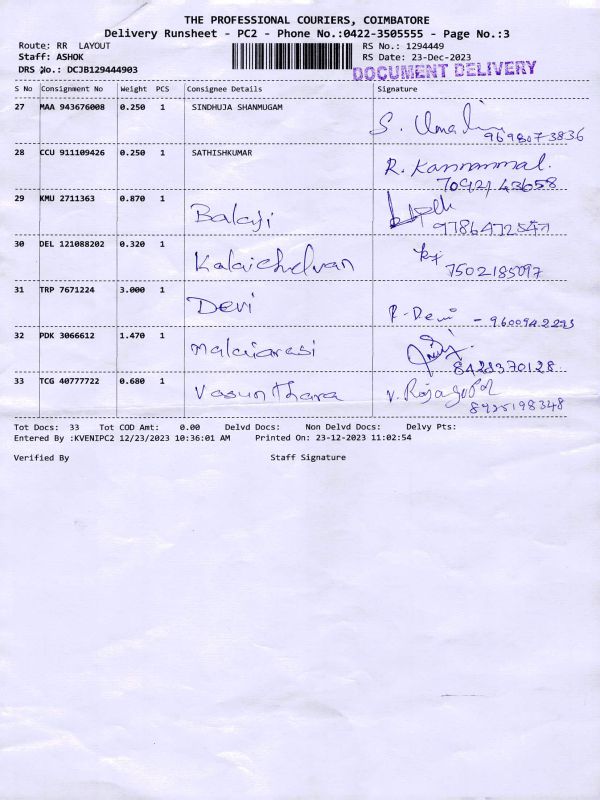 THE PROFESSIONAL COURIERS, COIMBATORE
Delivery Runsheet - PC2 - Phone No.:0422-3505555 - Page No.:3
Route: RR LAYOUT
RS No.: 1294449
Staff: ASHOK
RS Date: 23-Dec-2023
DRS No.: DCJB129444903
DOCUMENT DELIVERY
S No Consignment No Weight PCS Consignee Details Signature
27 MAA 943676008 0.250 1 SINDHUJA SHANMUGAM S. Umalini
9698073836
28 CCU 911109426 0.250 1 SATHISHKUMAR R. Kannammal.
7092143658
29 KMU 2711363 0.870 1 Balaji
9786472547
30 DEL 121088202 0.320 1 Kalaichelvan
7502185097
31 TRP 7671224 3.000 1 Devi P. Devi - 9600942293
32 PDK 3066612 1.470 1 Malaiarasi
8428370128
33 TCG 40777722 0.680 1 Vasunthara V. Rajagopal
8925198348
Tot Docs: 33 Tot COD Amt: 0.00 Delvd Docs: Non Delvd Docs: Delvy Pts:
Entered By :KVENIPC2 12/23/2023 10:36:01 AM Printed On: 23-12-2023 11:02:54
Verified By Staff Signature